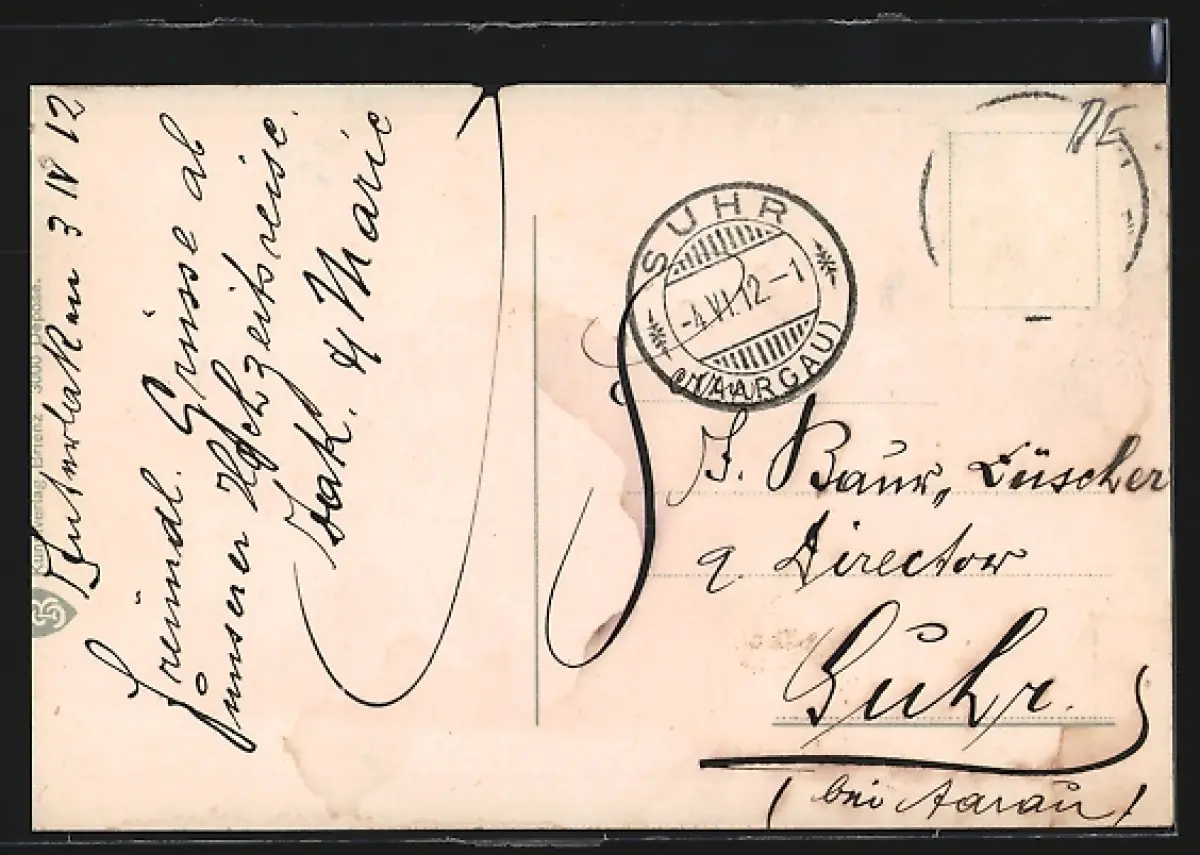 Interlaken 3 IV 12
Freündl. Grüsse ab
unserer Hochzeitsreise.
Jak. & Marie
Kunstverlag Brienz 3000 Deposé.
SUHR
-4.VI.12.-1
(AARGAU)
J. Baur, Lüscher
a. Director
Suhr.
(bei Aarau)